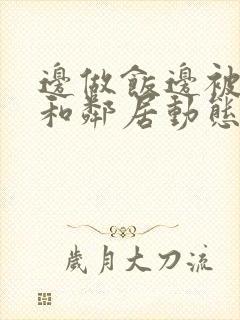 邊做飯邊被
和鄰居動態
歲月大刀流